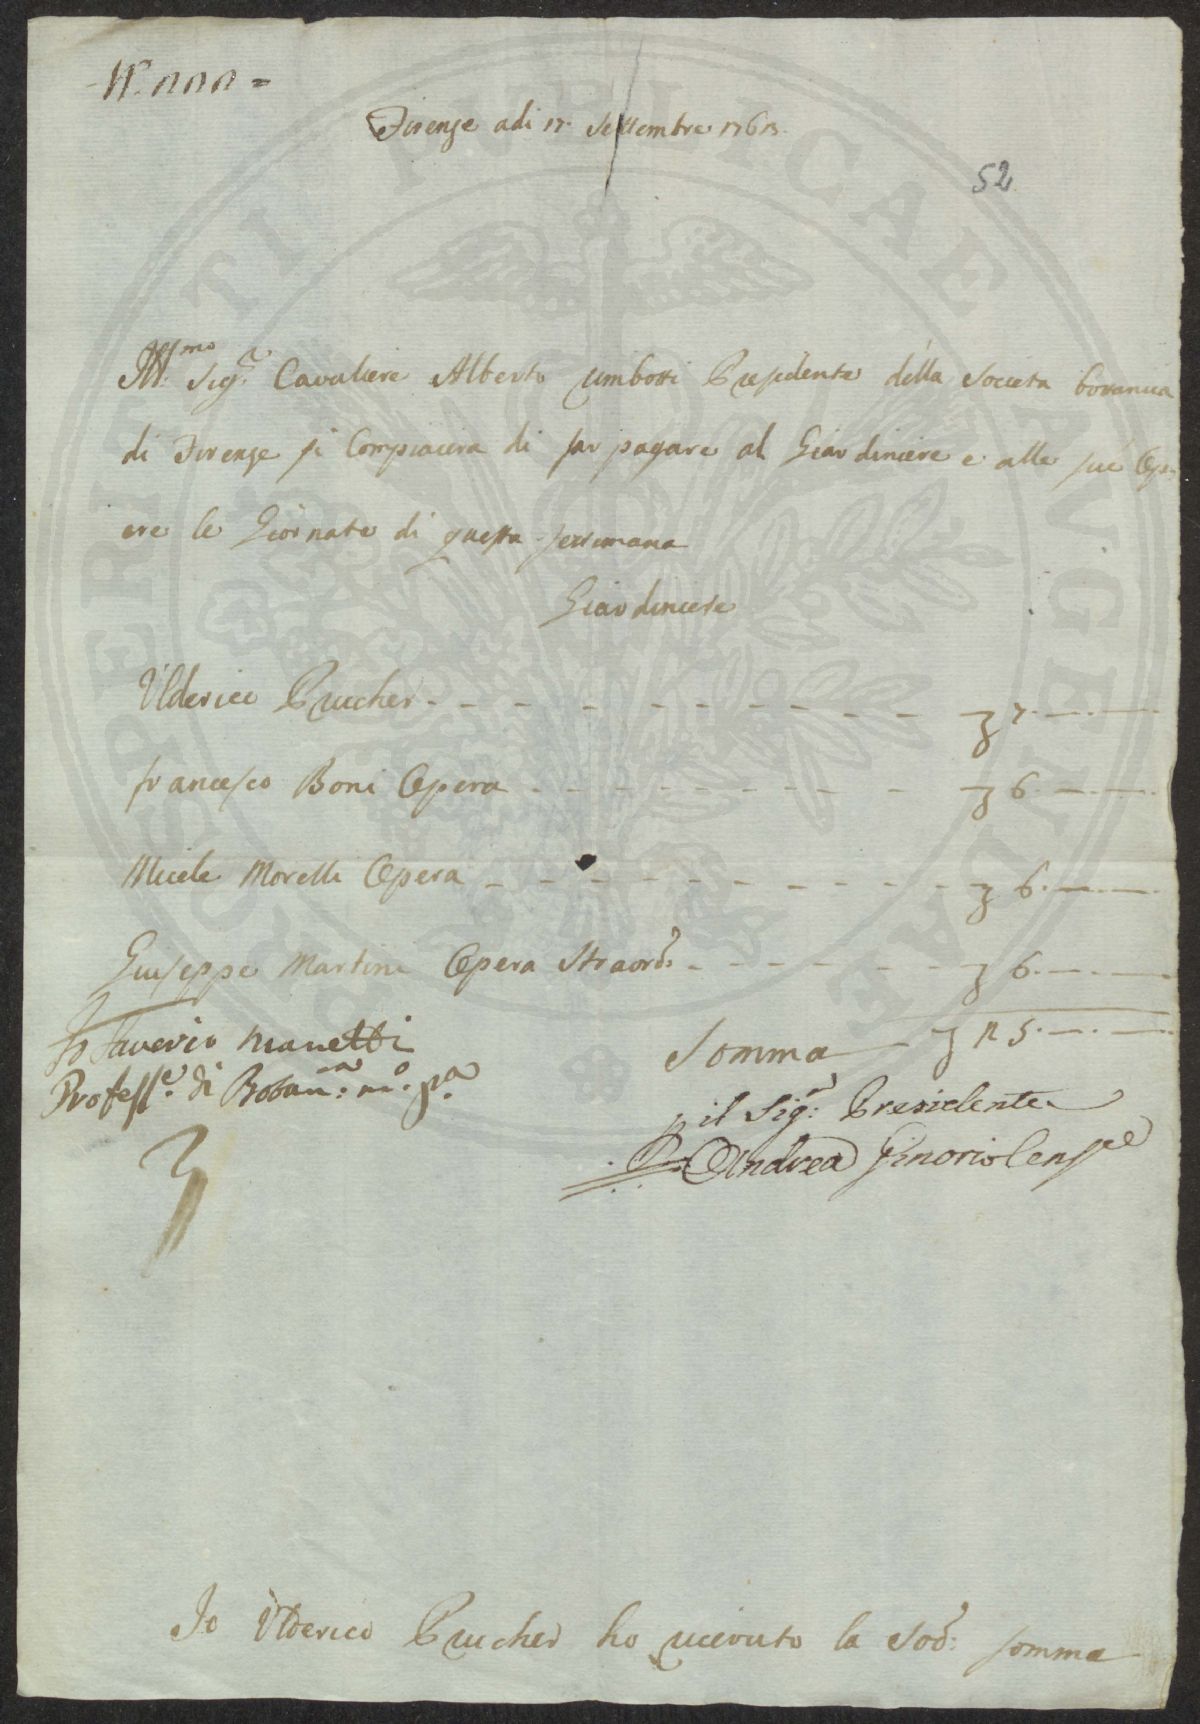 N.° 111 =
Firenze adi 17. Settembre 1763.
52
Ill:mo Sig:r Cavaliere Alberto Rimbotti Presidente della Societa botanica
di Firenze si Compiacera di far pagare al Giardiniere e alle sue Op-
ere le Giornate di questa settimana
Giardiniere
Ulderico Prucher - - - - - - - - - - - - - 7. — . —
francesco Boni Opera - - - - - - - - - - 6. — . —
Micele Morelli Opera - - - - - - - - - - 6. — . —
Giuseppe Martini Opera Straord: - - - - - 6. — . —
Somma — 25. — . —
Io Saverio Manetti
Profess:e di Botan:ca m:o p:a
p il Sig:r Presidente
Andrea Ginori Cens:re
Io Ulderico Prucher ho ricevuto la Sod: somma
PROSPERITATI PUBLICAE AUGENDAE